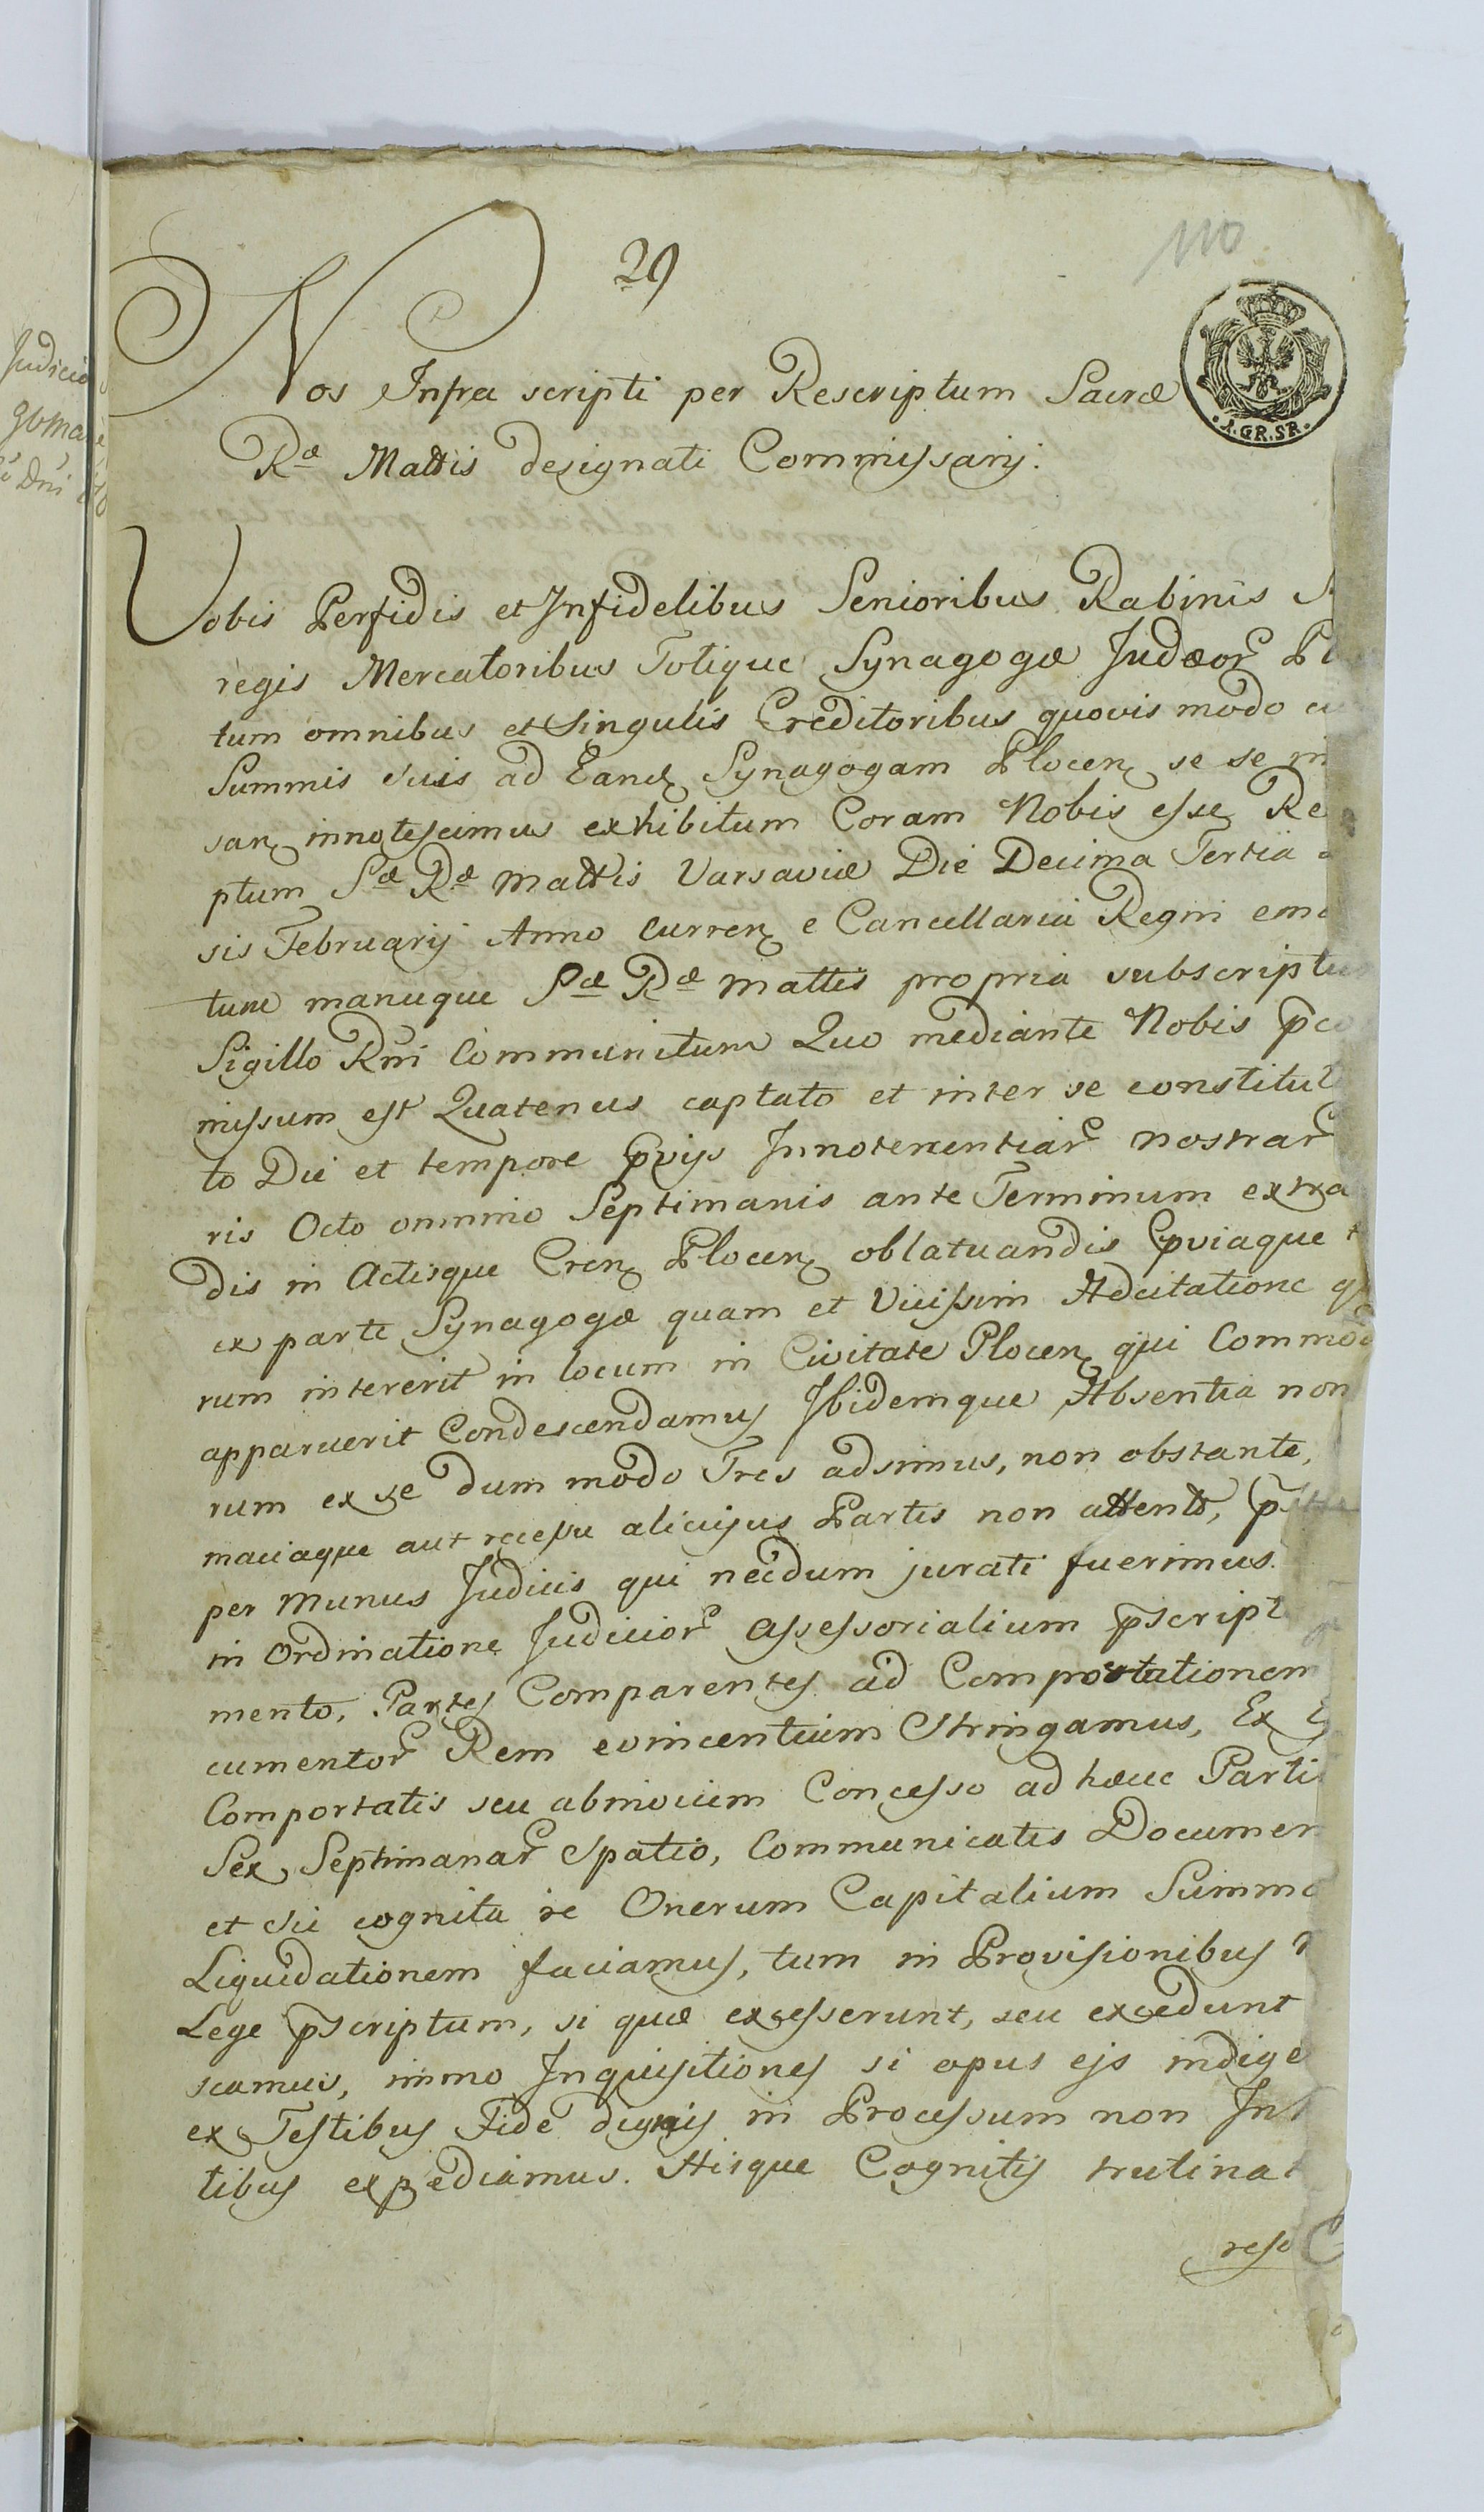 29
110
Nos Infra scripti per Rescriptum Sacræ
.1.GR.SR.
Ræ Mattis designati Commissarij.
Vobis Perfidis et Infidelibus Senioribus Rabinis
regis Mercatoribus Totique Synagogæ Judæor Pl
tum omnibus et Singulis Creditoribus quovis modo cu
Summis suis ad Eand Synagogam Plocen se se in
san innotescimus exhibitum Coram Nobis esse Re
ptum Sæ Ræ Mattis Varsaviæ Die Decima Tertia
sis Februarij Anno Curren e Cancellaria Regni ema
tum manuque Sæ Ræ Mattis propria subscriptum
Sigillo Rni Communitum Quo mediante Nobis pco
missum est Quatenus captato et inter se constitut
to Die et tempore pvijs Innotenentiar nostrar
ris Octo omnino Septimanis ante Terminum extra
dis in Actisque Cren Plocen oblatuandis pviaque t
ex parte Synagogæ quam et Vicissim Adcitatione q
rum intererit in locum in Civitate Plocen qui Commod
apparuerit Condescendamus Ibidemque Absentia non
rum ex se dum modo Tres adsimus, non obstante,
maciaque aut recessu alicujus Partis non attento, p
per munus Judicis qui necdum jurati fuerimus
in Ordinatione Judicior Assessorialium pscript
mento, Partes Comparentes ad Comportationem
cumentor Rem evincentium Stringamus, Ex
Comportatis seu abinvicem Concesso ad hæcc Parti
Sex Septimanar Spatio, Communicatis Documen
et sic cognita re Onerum Capitalium Summa
Liquidationem faciamus, tum in Provisionibus
Lege pscriptum, si quæ excesserunt, seu excedunt
scamus, immo Inquisitiones si opus ejs indige
ex Testibus Fide dignis in Processum non Int
tibus expediamus. Hisque Cognitis trutinat
reso
Judicio
Dni